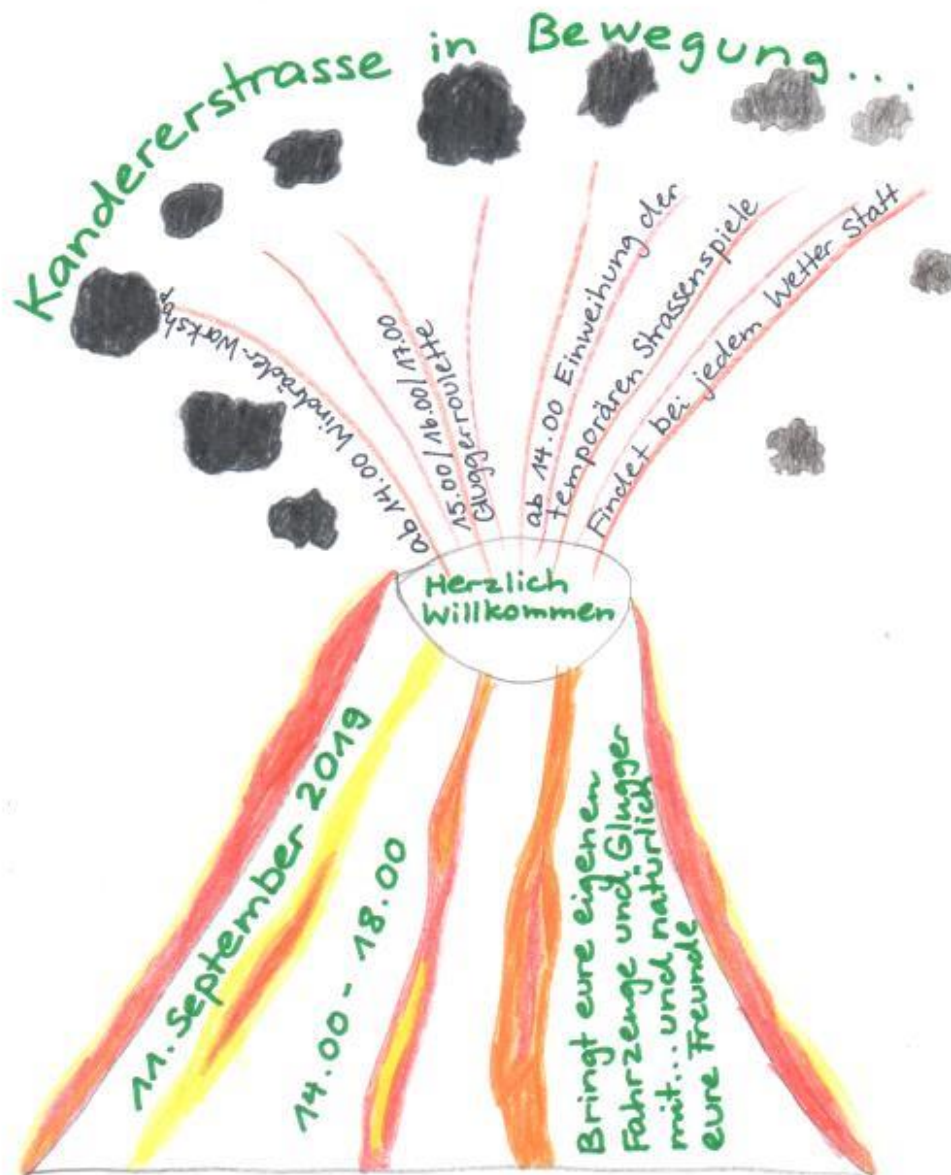 Kandererstrasse in Bewegung...
ab 14.00 Windräder-Workshop
15.00/16.00/17.00
Gluggerroulette
ab 14.00 Einweihung der
temporären Strassenspiele
Findet bei jedem Wetter Statt
Herzlich
Willkommen
11. September 2019
14.00 - 18.00
Bringt eure eigenen
Fahrzeuge und Glugger
mit... und natürlich
eure Freunde